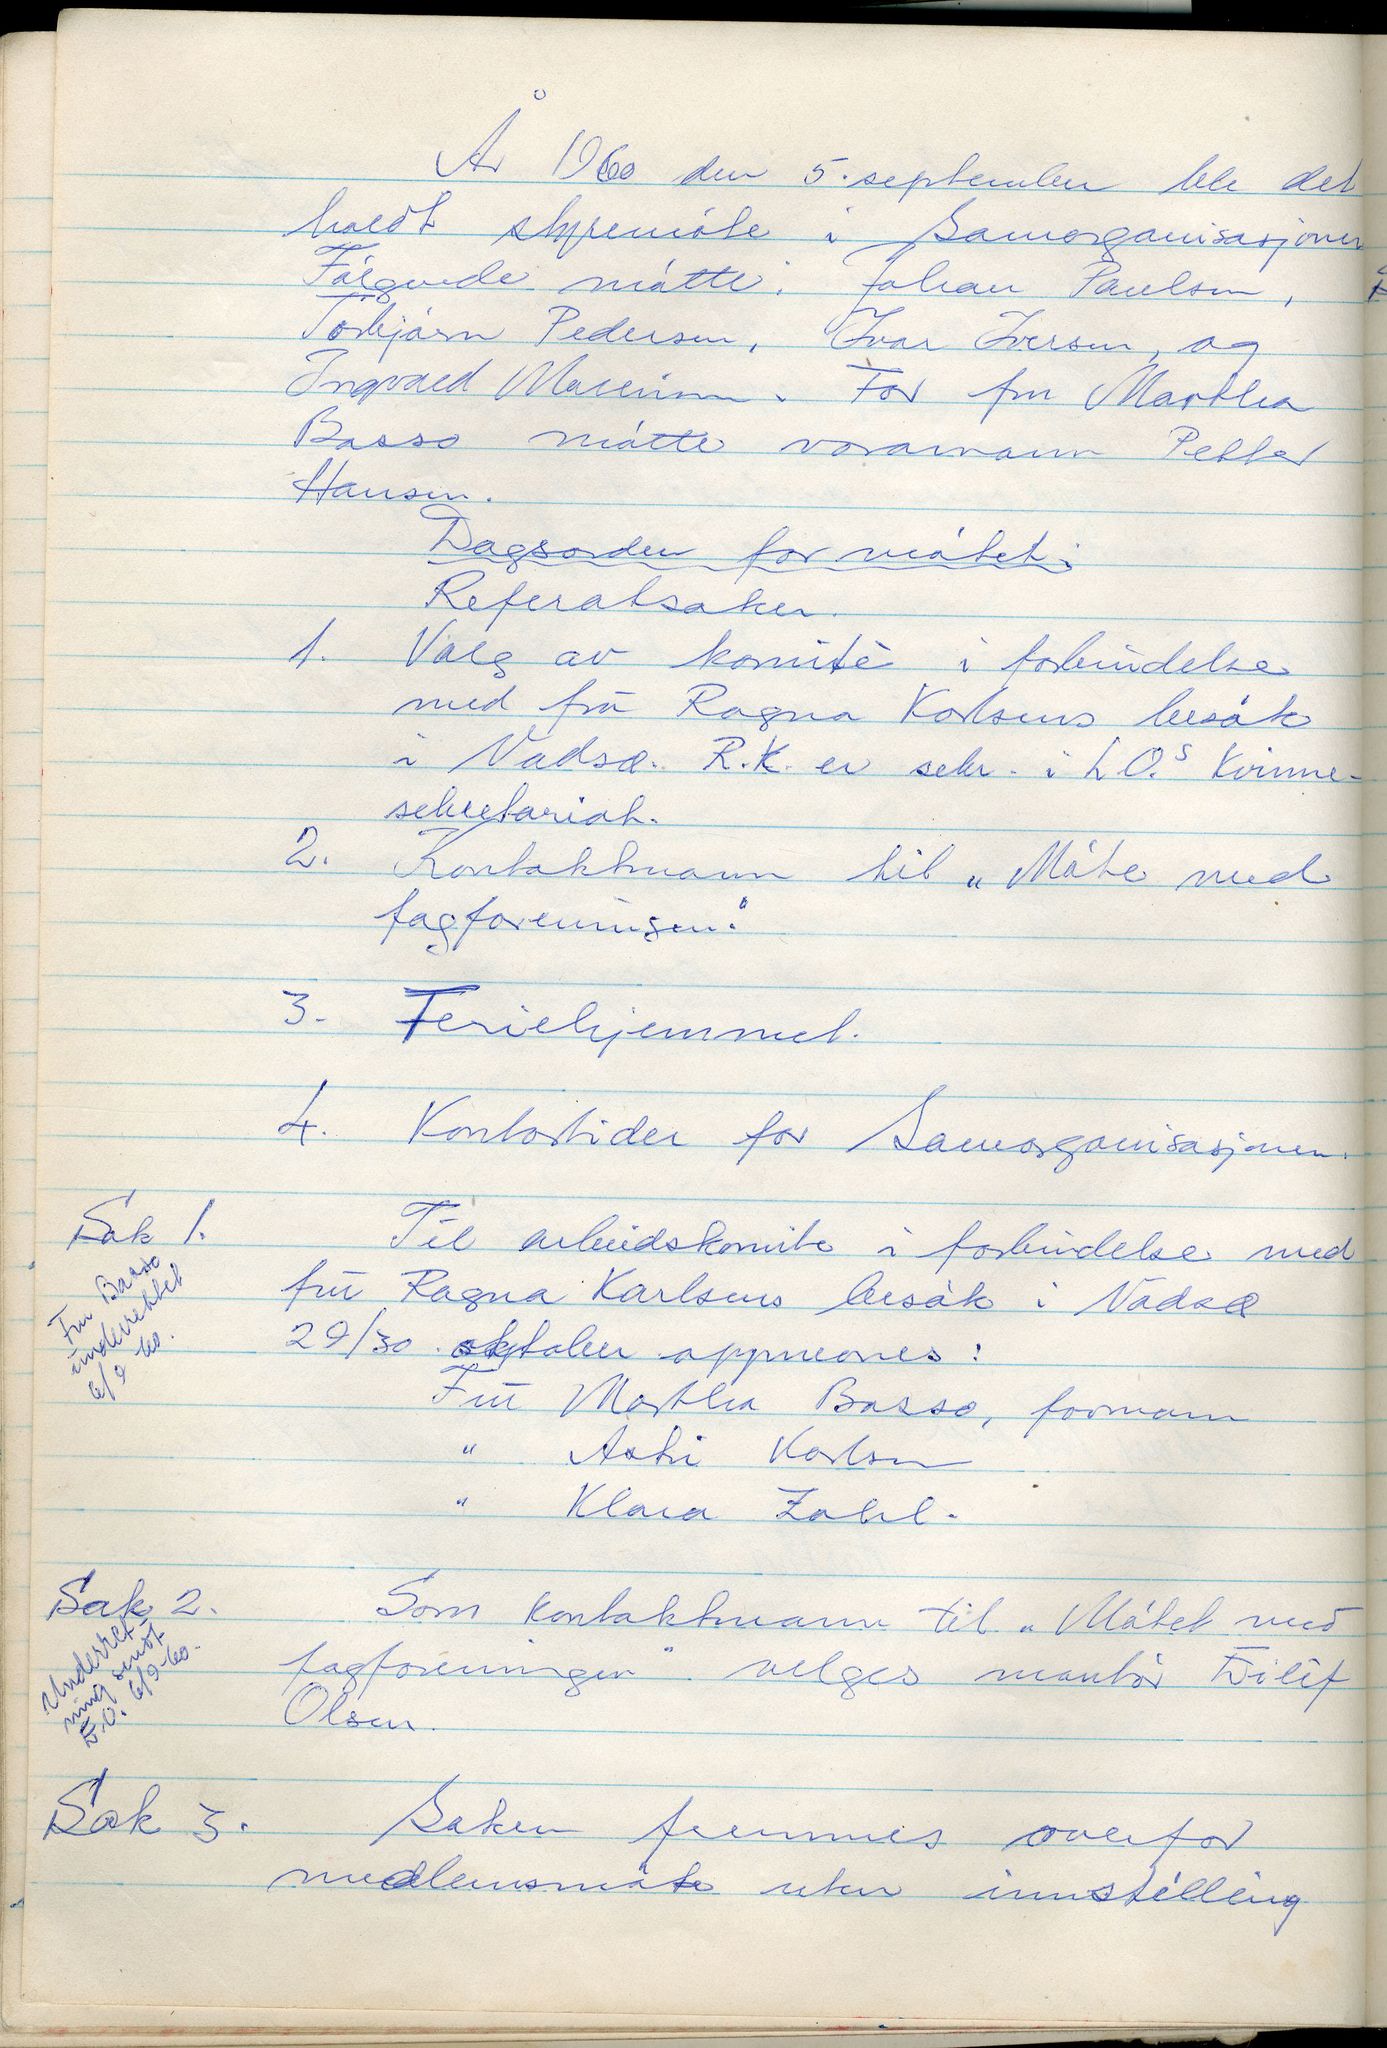 År 1960 den 5. september ble det
holdt styremöte i Samorganisasjonen
Fölgende mötte: Johan Paulsen,
Torbjörn Pedersen, Ivar Iversen, og
Ingvald. For fru Martha
Basso mötte varamann Petter
Hansen.
Dagsorden for mötet:
Referatsaker.
1. Valg av komitè i forbindelse
med frü Ragna Karlsens besök
i Vadsø. R.K. er sekr. i L.O.s Kvinne-
sekretariat.
2. Kontaktmann til „Möte med
fagforeningen."
3. Feriehjemmet.
4. Kontortider for Samorganisasjonen.
Sak 1. Til arbeidskomite i forbindelse med
frü Ragna Karlsens besök i Vadsø
29/30. oktober oppnevnes:
Frü Martha Basso, formann
" Astri Karlsen
" Klara Zahl.
Fru Basso
underrettet
6/9-60.
Sak 2. Som kontaktmann til „Mötet med
fagforeningen" velges montör Eilif
Olsen.
Underret-
ning sendt
E.O. 6/9-60.
Sak 3. Saken fremmes overfor
medlemsmöte uten innstilling